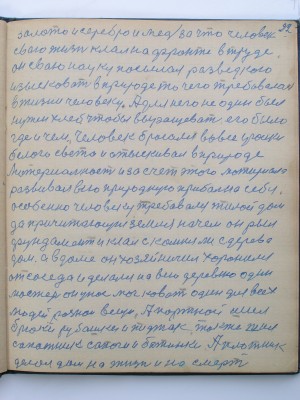 32
золото и серебро и мед, за что человек
свою жизнь клал на фронте в труде,
он свою науку посылал разведкою
изыскивать в природе то чего требовалось
в жизни человеку. А для него не один был
нужен хлеб чтобы выращивать его было
где и чем, человек бросался во все уголки
белого света и отыскивал в природе
материалность и за счет этого
развивал всю природную прибыл на себя,
особенно человеку требовался жилой дом
да причитающая земля на чем он рыл
фундамент и клал с камня с дерева
дом. А в доме он хозяйничил хоронился
от соседа и делал на всю деревню один
мастер он умел мог ковать один для всех
людей разные вещи, А портной шил
брюки рубашки и пиджак, тоже шил
сапожник сапоги и ботинки А плотник
делал дом на жизнь и на смерть